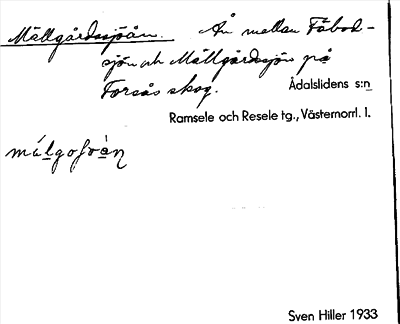 Mällgårdssjöån. Ån mellan Fäbod-
sjön och Mällgårdssjön på
Forsås skog.
Ådalslidens s:n
Ramsele och Resele tg., Västernorrl. l.
Sven Hiller 1933